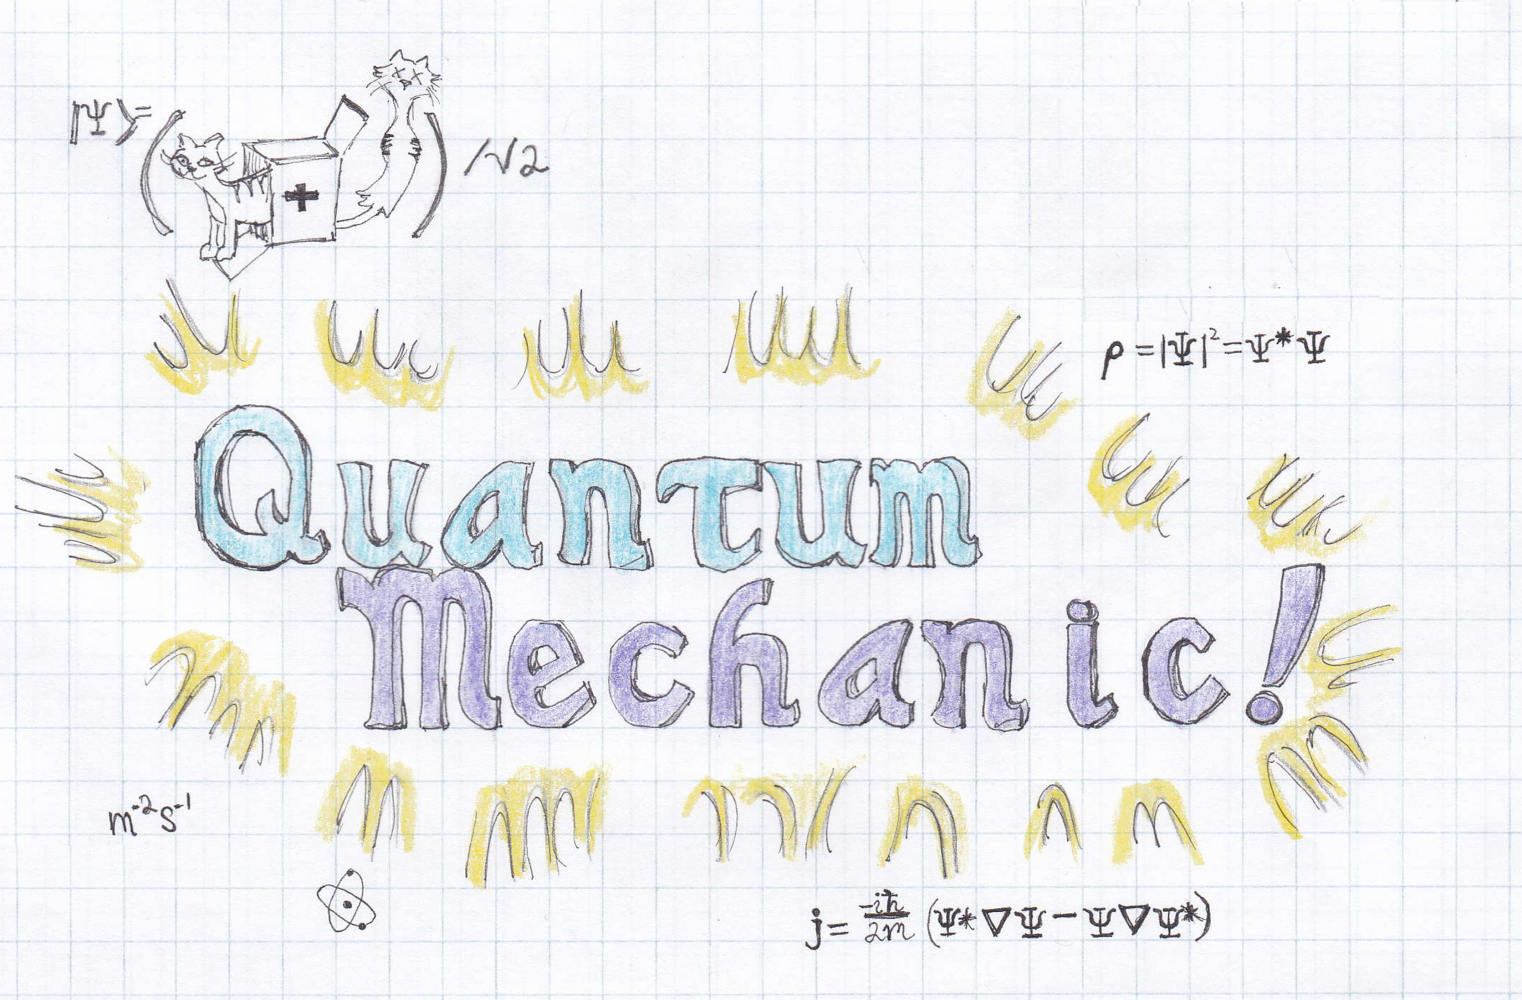 |Ψ⟩=( + )/√2
ρ=|Ψ|²=Ψ*Ψ
Quantum
Mechanic!
m⁻²s⁻¹
j=-iħ/2m (Ψ*∇Ψ-Ψ∇Ψ*)